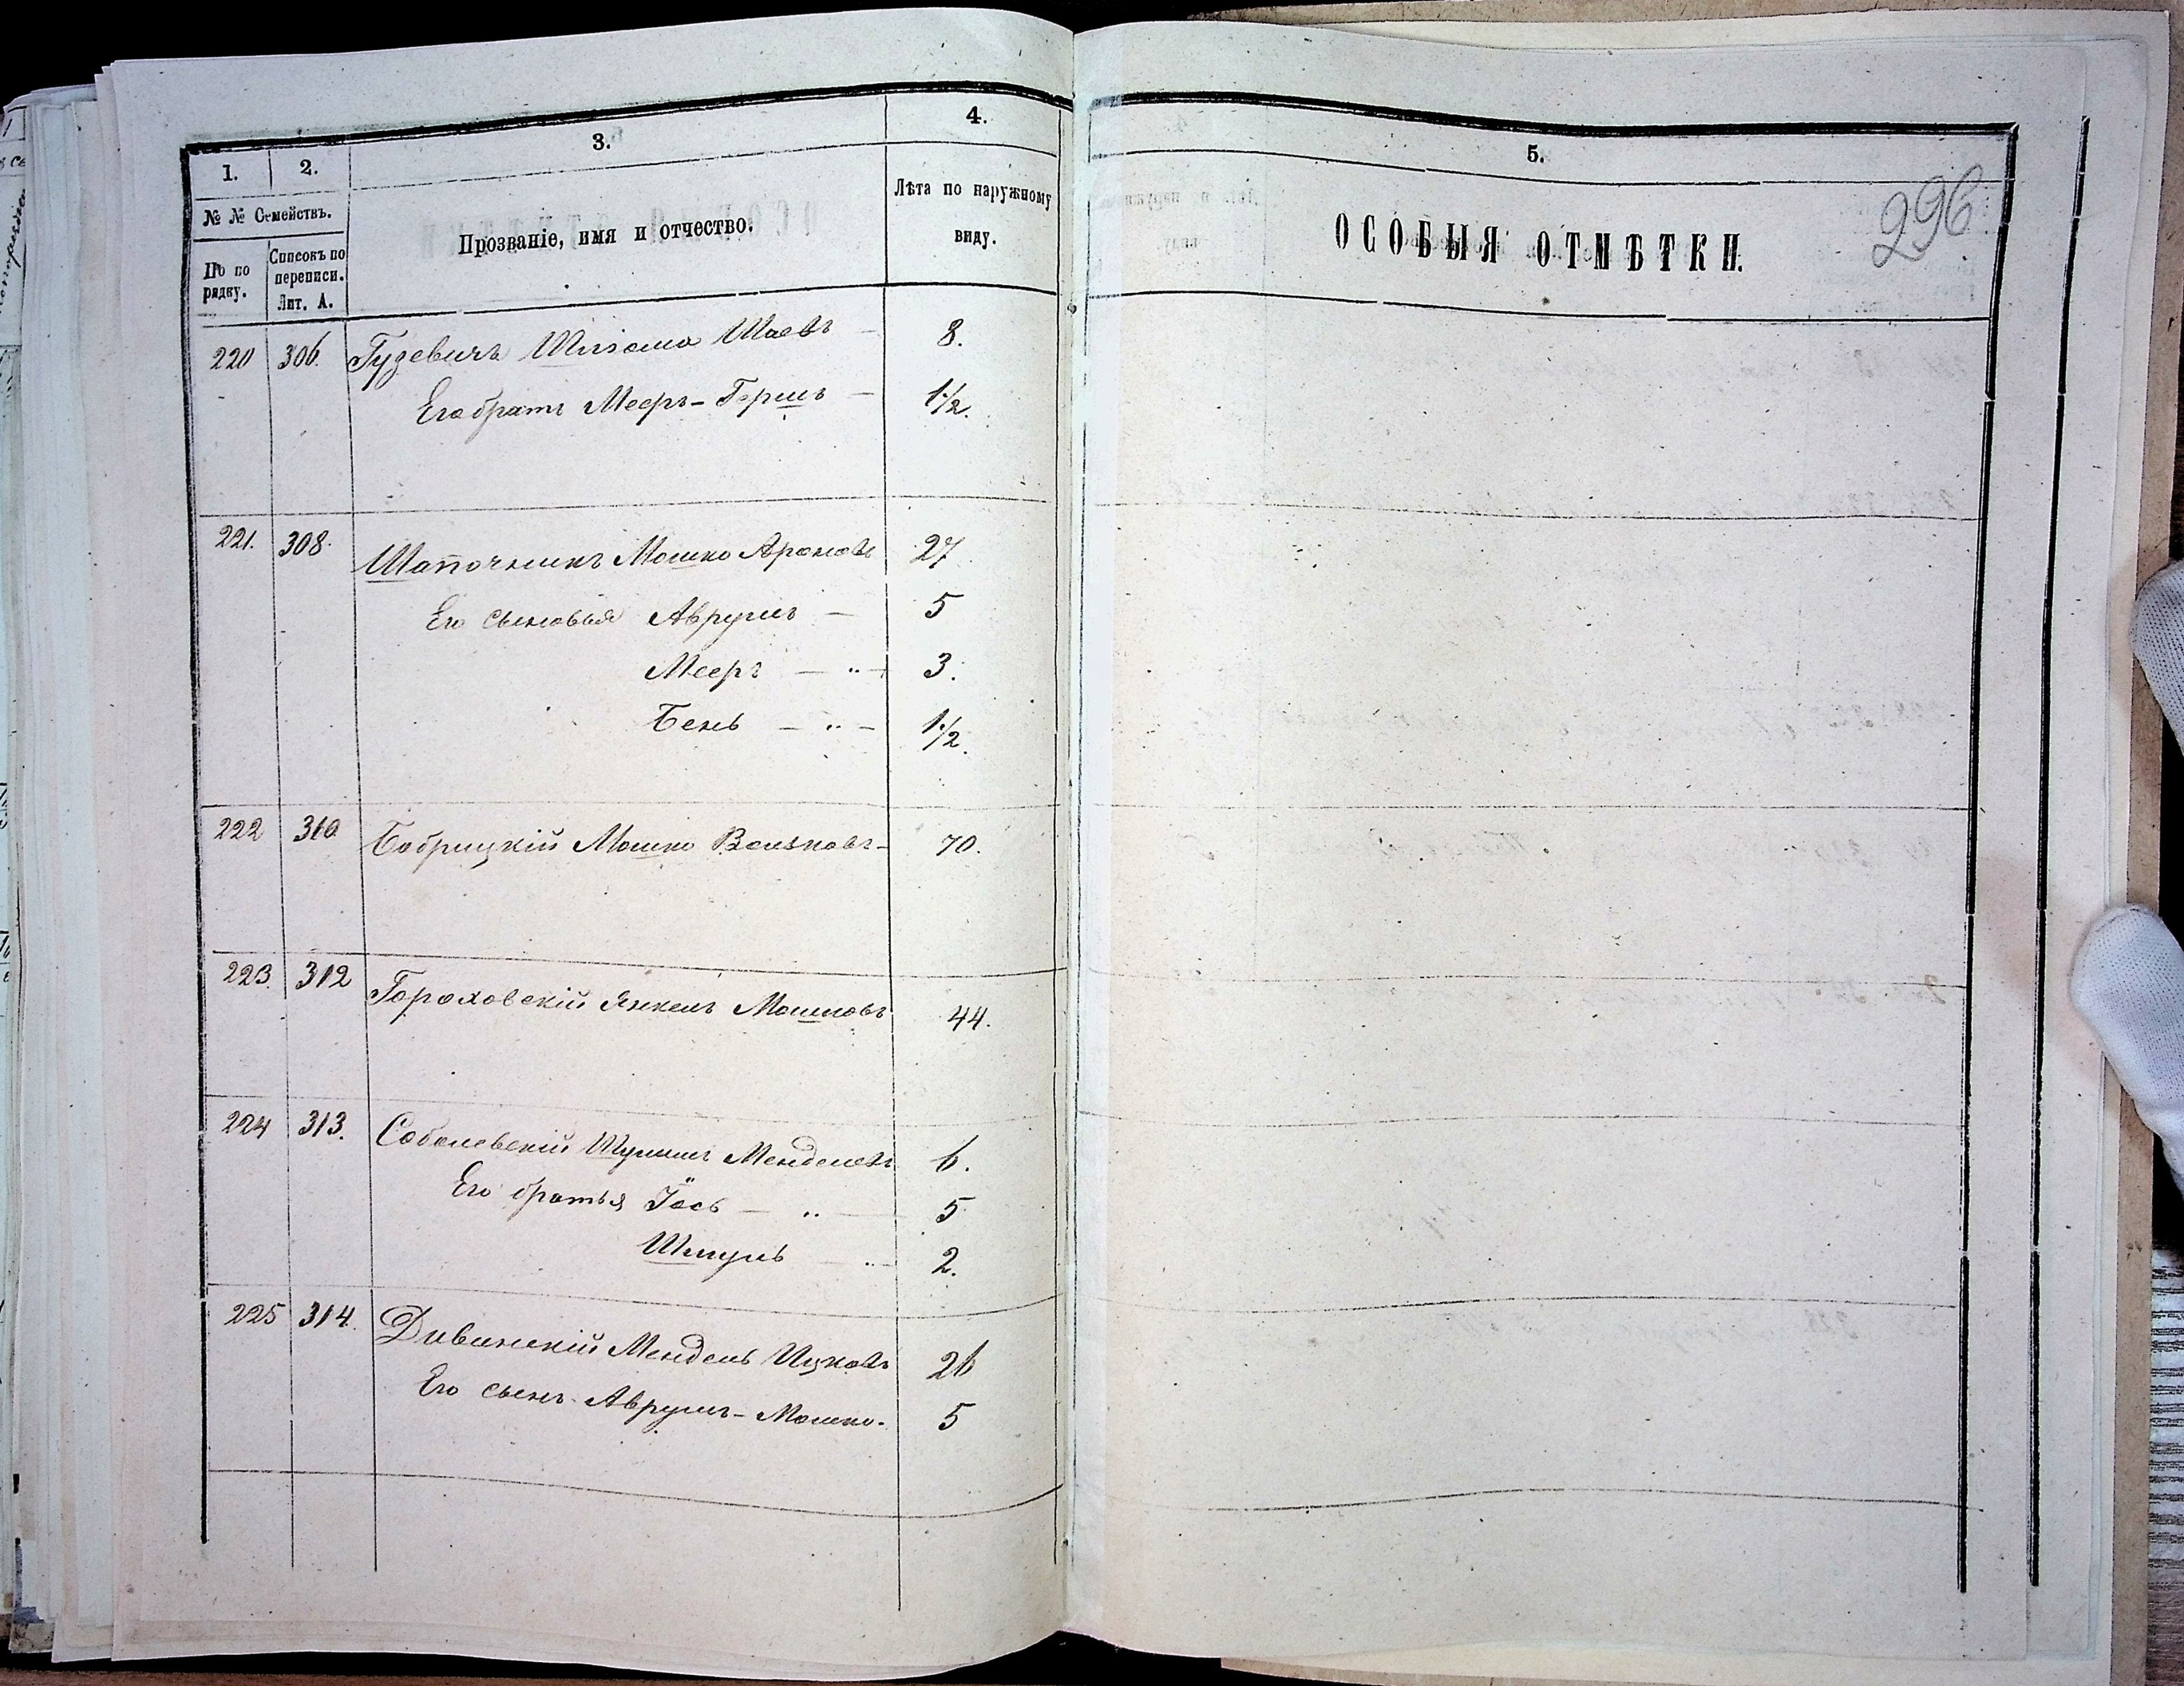 1.
2.
3.
4.
№ № Семействъ.
По по
рядку.
Списокъ по
переписи.
Лит. А.
Прозваніе, имя и отчество.
Лѣта по наружному
виду.
220 306. Гузевичъ Шлiома Шаевъ 8.
Его братъ Мееръ-Гершъ 1½.
221. 308. Шапочникъ Мошко Ароновъ 27
Его сыновья Аврумъ — 5
Мееръ — „ — 3.
Бень — „ — 1½.
222 310 Бобрицкій Мошко Вольковъ — 70.
223. 312 Гороховскій Янкель Мошковъ 44.
224 313. Соболевскій Шулимъ Менделевъ 6.
Его братья Іось — „ — 5
Шмуль „ — 2.
225 314. Дивинскій Мендель Ицковъ 26
Его сынъ Аврумъ-Мошко. 5
5.
ОСОБЫЯ ОТМѢТКИ.
296